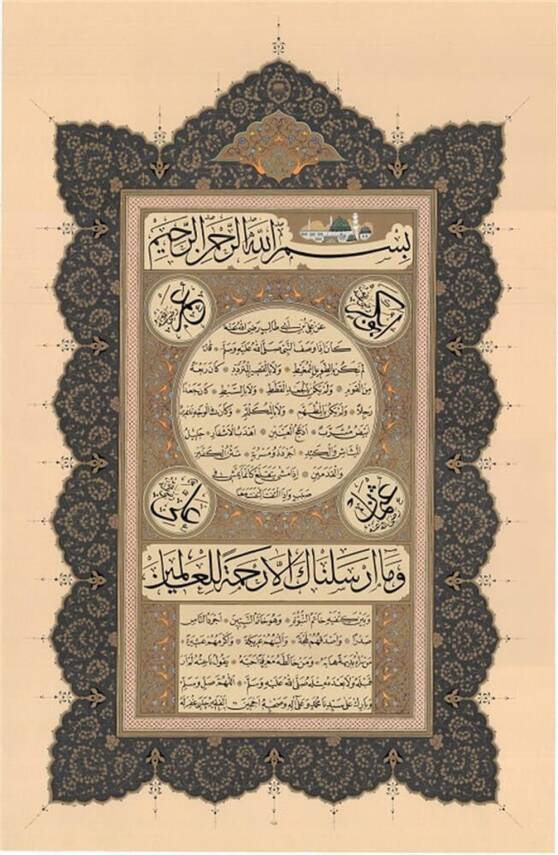 بسم الله الرحمن الرحيم
ابو بكر رضي الله عنه
عمر رضي الله عنه
عن علي بن ابي طالب رضي الله عنه
كان اذا وصف النبي صلى الله عليه وسلم قال
لم يكن بالطويل الممغط ولا بالقصير المتردد وكان ربعة
من القوم ولم يكن بالجعد القطط ولا بالسبط كان جعدا
رجلا ولم يكن بالمطهم ولا بالمكلثم وكان في الوجه تدوير
ابيض مشرب ادعج العينين اهدب الاشفار جليل
المشاش والكتد اجرد ذو مسربة شثن الكفين
والقدمين اذا مشى يتقلع كانما يمشي في
صبب واذا التفت التفت معا
عثمان رضي الله عنه
علي رضي الله عنه
وما ارسلناك الا رحمة للعالمين
وبين كتفيه خاتم النبوة وهو خاتم النبيين اجود الناس
صدرا واصدقهم لهجة والينهم عريكة واكرمهم عشيرة
من راه بديهة هابه ومن خالطه معرفة احبه يقول ناعته لم ار
قبله ولا بعده مثله صلى الله عليه وسلم اللهم صل وسلم
وبارك على سيدنا محمد وعلى اله وصحبه اجمعين الفقير غفر له